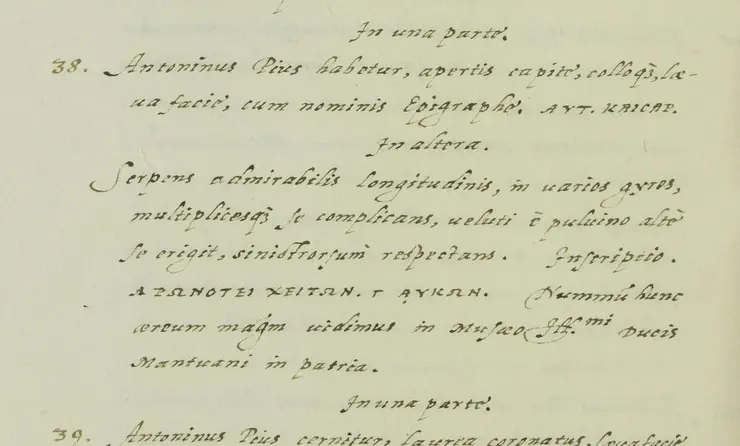 In una parte.
38. Antoninus Pius habetur, apertis capite, colloq̃, læ-
ua facie, cum nominis Epigraphe. ΑΥΤ. ΚΑΙϹΑΡ.
In altera.
Serpens admirabilis longitudinis, in varios gyros,
multiplicesq̃ se complicans, ueluti è puluino altè
se erigit, sinistrorsum respectans. Inscriptio.
ΑΡΩΝΟΤΕΙ ΧΕΙΤΩΝ. Γ ΛΥΚΩΝ. Nummũ hunc
æreum mag̃m uidimus in Musæo Ill.mi Ducis
Mantuani in patria.
In una parte.
39. Antoninus Pius cernitur, laurea coronatus, leua facie